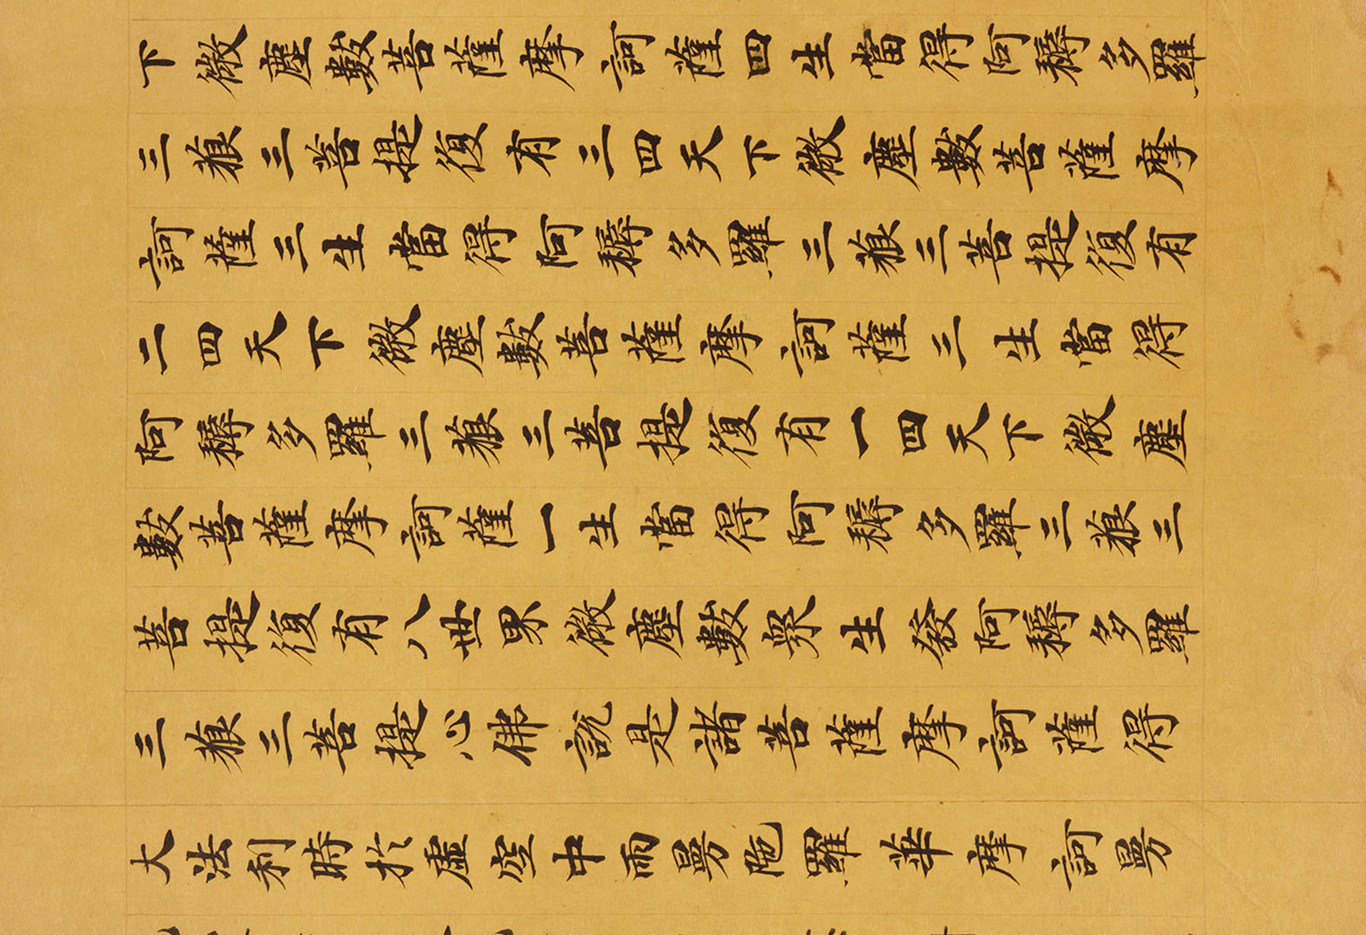 下微塵數菩薩摩訶薩四生當得阿耨多羅
三藐三菩提復有三四天下微塵數菩薩摩
訶薩三生當得阿耨多羅三藐三菩提復有
二四天下微塵數菩薩摩訶薩三生當得
阿耨多羅三藐三菩提復有一四天下微塵
數菩薩摩訶薩一生當得阿耨多羅三藐三
菩提復有八世界微塵數衆生發阿耨多羅
三藐三菩提心佛說是諸菩薩摩訶薩得
大法利時於虛空中雨曼陀羅華摩訶曼